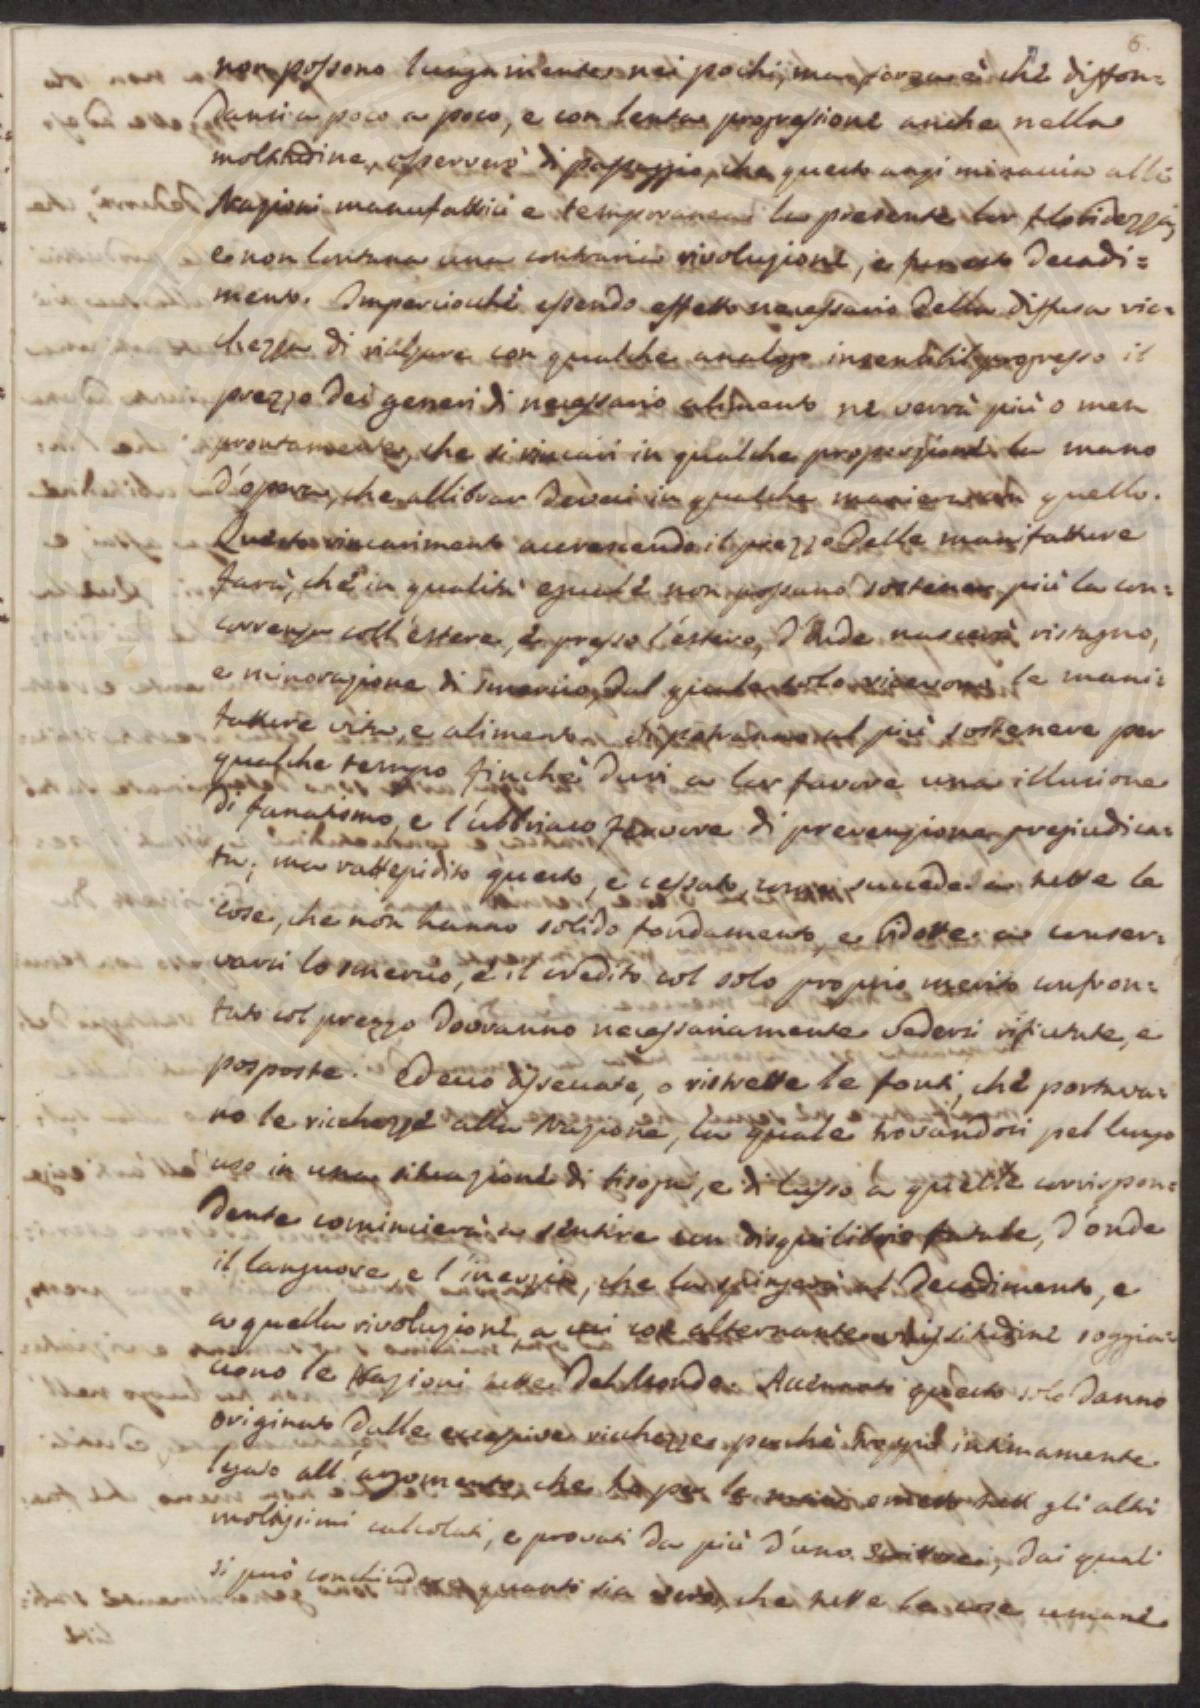 6.
non possono lungamente nei pochi, ma forza è che diffon=
dansi a poco a poco, e con lenta progressione anche nella
moltitudine, osserverò di passaggio, che questo anzi minaccia alle
Nazioni manufattrici e temporanea la presente lor floridezza,
e non lontana una contraria rivoluzione, e funesto decadi=
mento. Imperciocchè essendo effetto necessario della diffusa ric=
chezza di rialzare con qualche analogo insensibil progresso il
prezzo dei generi di necessario alimento ne verrà più o men
prontamente, che si rincari in qualche proporzione la mano
d'opera, che allibrar devesi in qualche maniera con quello.
Questo rincarimento accrescendo il prezzo delle manifatture
farà, che in qualità eguale non possano sostener più la con=
correnza coll'estere, e presso l'estero, d'onde nascerà ristagno,
e minorazione di smercio, dal quale solo ricevono le mani=
fatture vita, e alimento. Si potranno al più sostenere per
qualche tempo finchè duri a lor favore una illusione
di fanatismo, e l'ubbriaco favore di prevenzione pregiudica=
ta; ma rattepidito questo, e cessato, come succede a tutte le
cose, che non hanno solido fondamento, e ridotte a conser=
varsi lo smercio, e il credito col solo proprio merito confron=
tato col prezzo dovranno necessariamente vedersi rifiutate, e
posposte. Ed ecco disseccate, o ristrette le fonti, che portava=
no le ricchezze alla Nazione, la quale trovandosi pel lungo
uso in una situazione di bisogni, e di lusso a quelle corrispon=
dente comincierà a sentire un disquilibrio fatale, d'onde
il languore, e l'inerzia, che la spingerà al decadimento, e
a quella rivoluzione, a cui con alternante vicissitudine soggia=
ciono le Nazioni tutte del Mondo. Accennato questo solo danno
originato dalle eccessive ricchezze, perchè troppo intimamente
legato all'argomento, che ho per le mani ometto gli altri
moltissimi calcolati, e provati da più d'uno scrittore, dai quali
si può conchiudere quanto sia vero, che tutte le cose umane